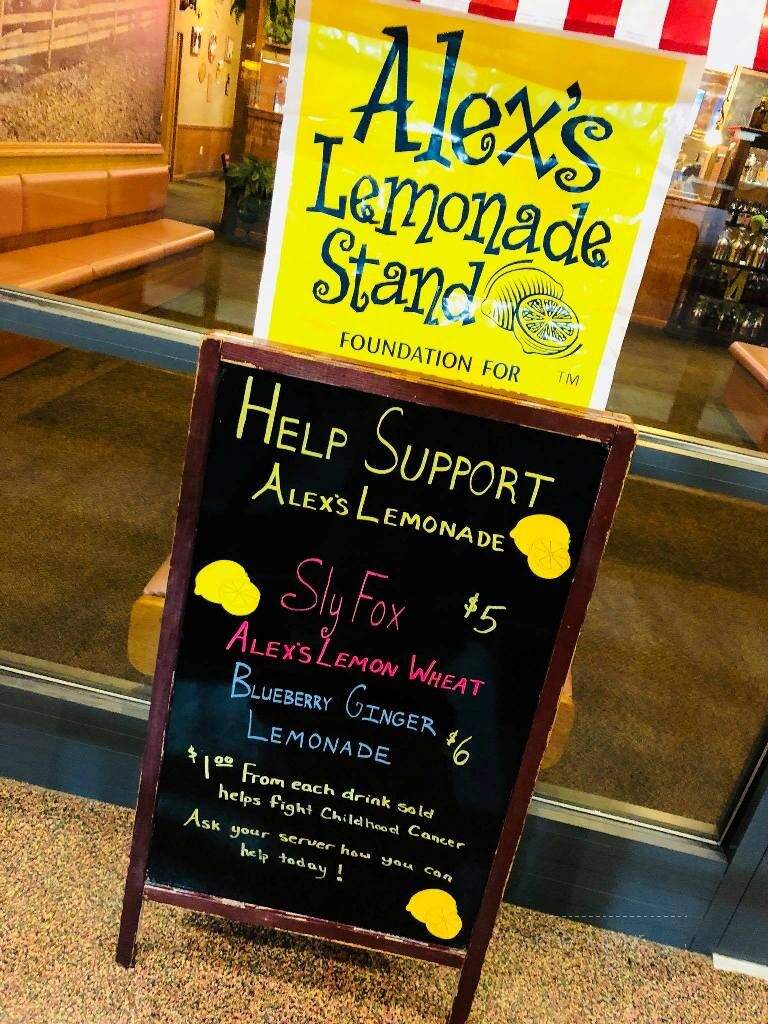 Alex's
Lemonade
Stand
FOUNDATION FOR TM
HELP SUPPORT
ALEX'S LEMONADE
Sly Fox $5
ALEX'S LEMON WHEAT
BLUEBERRY GINGER
LEMONADE $6
$1.00 From each drink sold
helps fight Childhood Cancer
Ask your server how you can
help today!